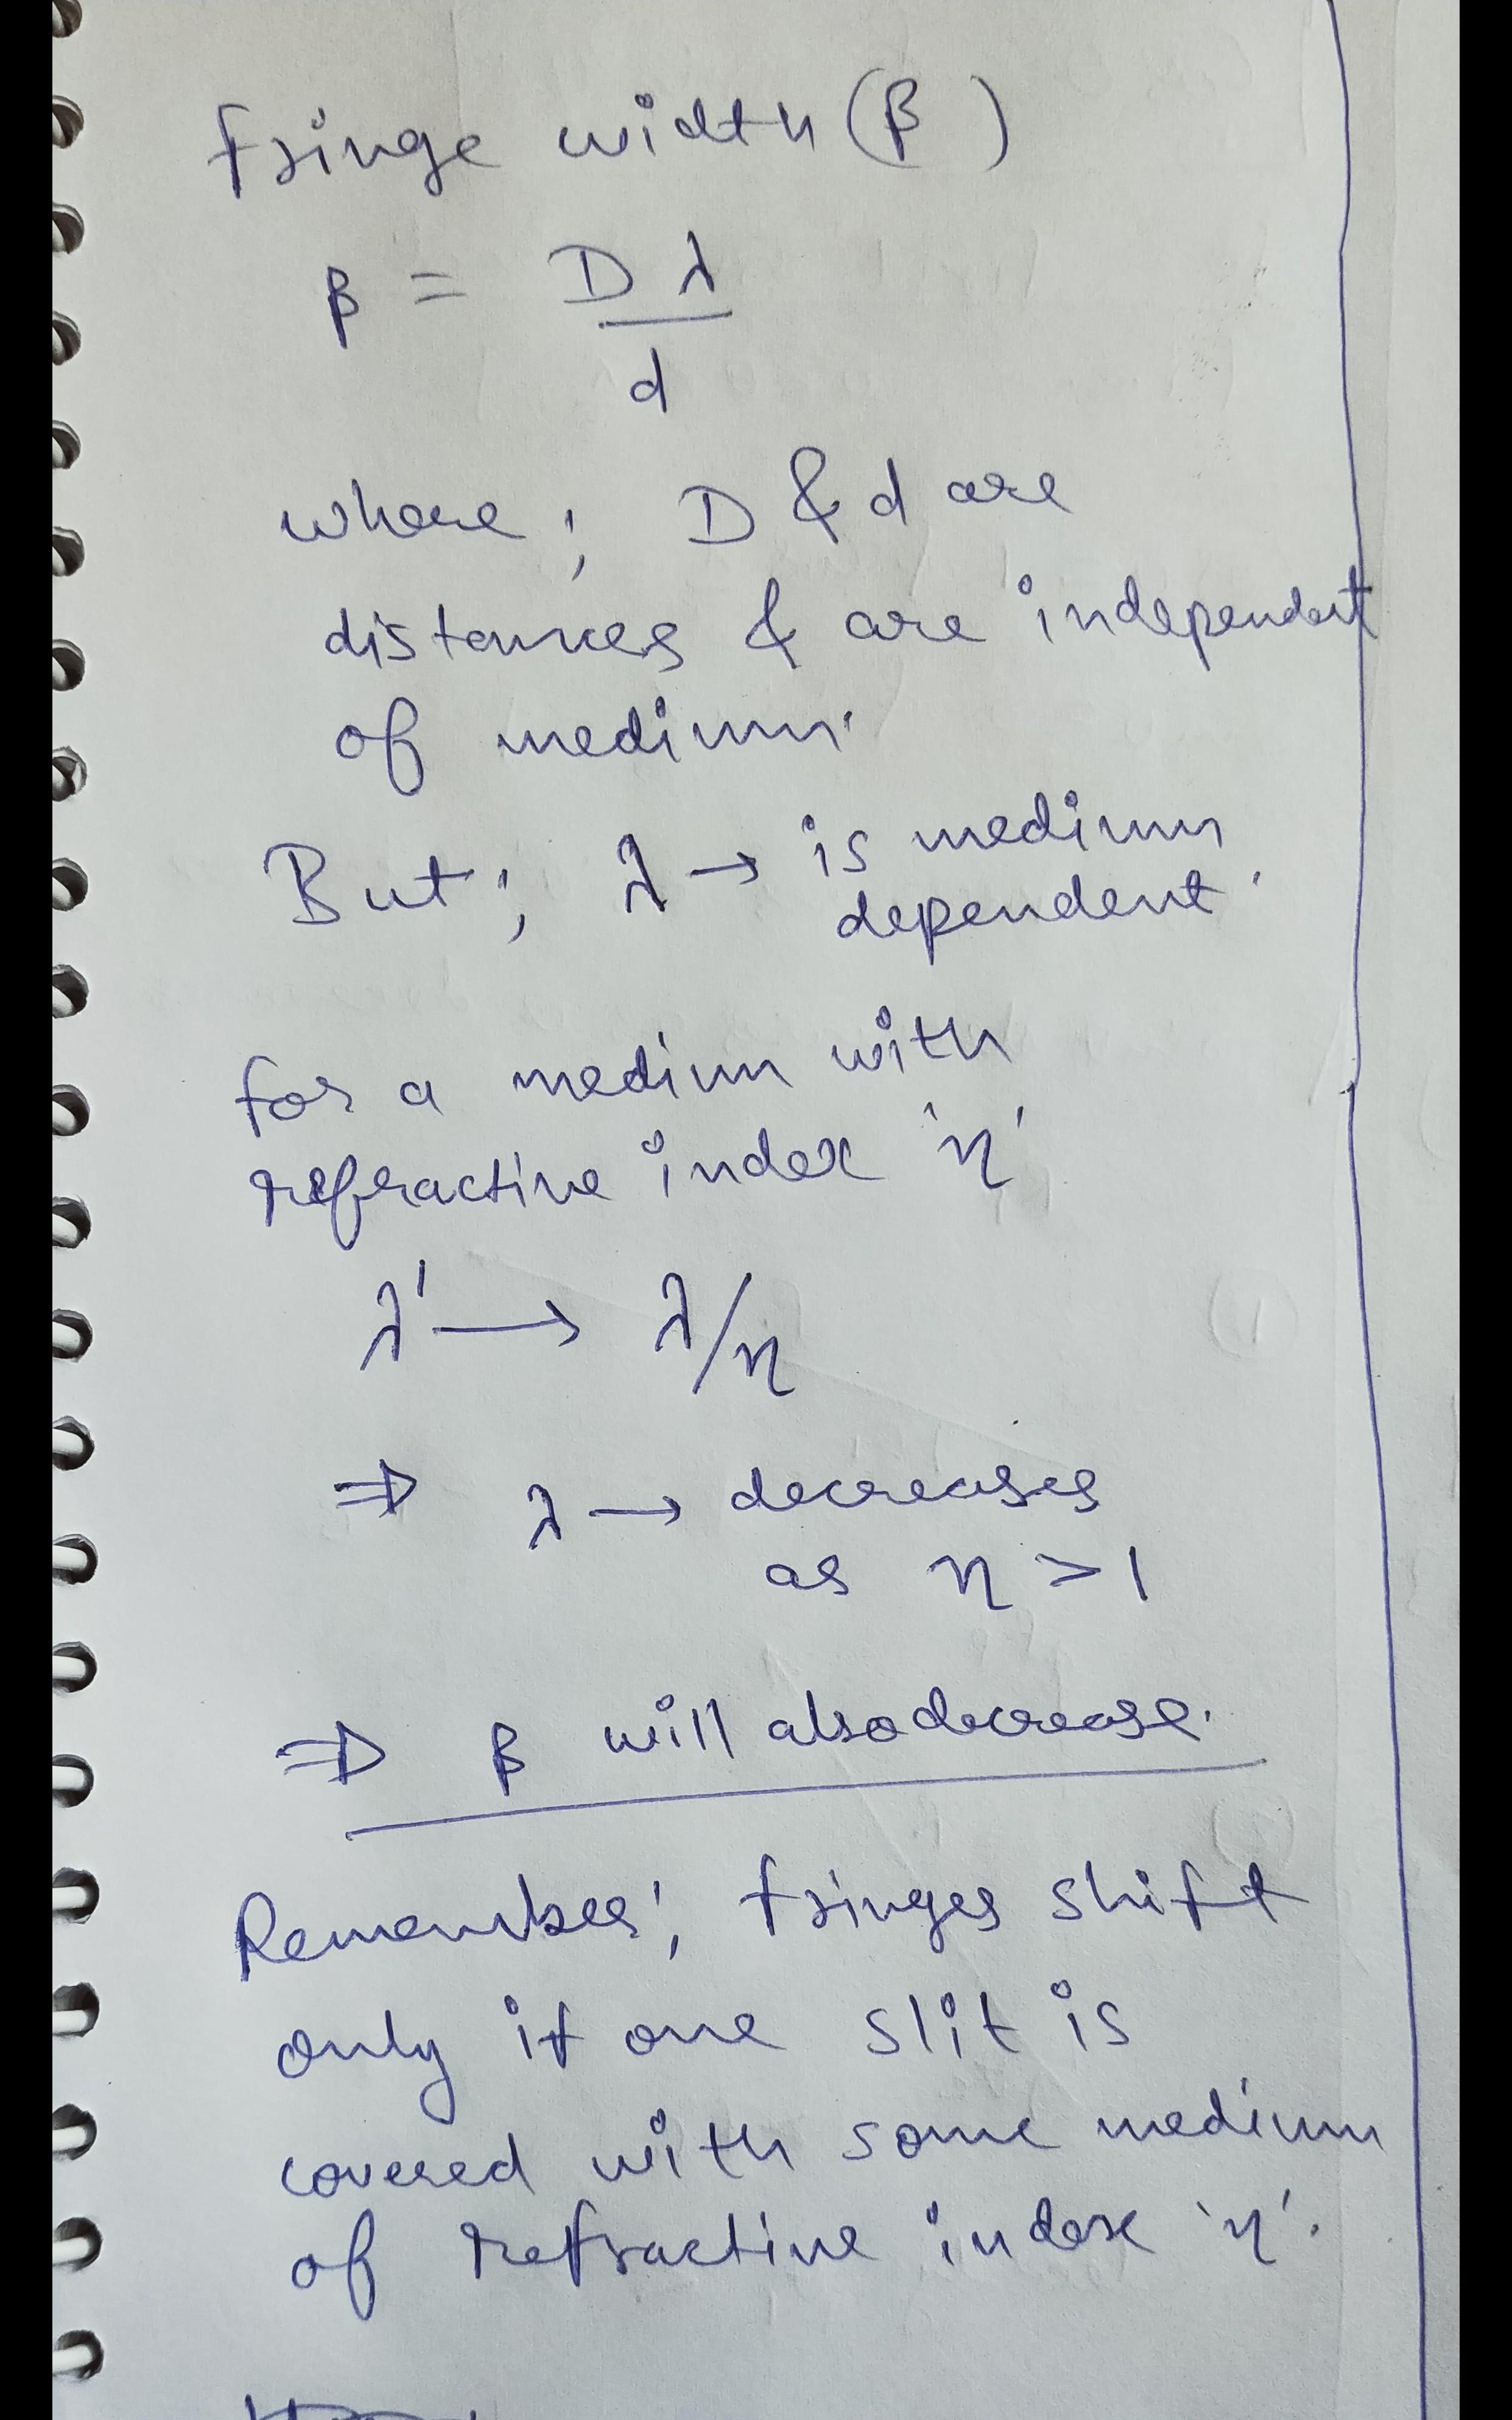 Fringe width (β)
β = Dλ
d
where; D & d are
distances & are independent
of medium.
But; λ → is medium
dependent.
for a medium with
refractive index 'η'
λ' → λ/η
⇒ λ → decreases
as η > 1
⇒ β will also decrease.
Remember; fringes shift
only if one slit is
covered with some medium
of refractive index 'η'.